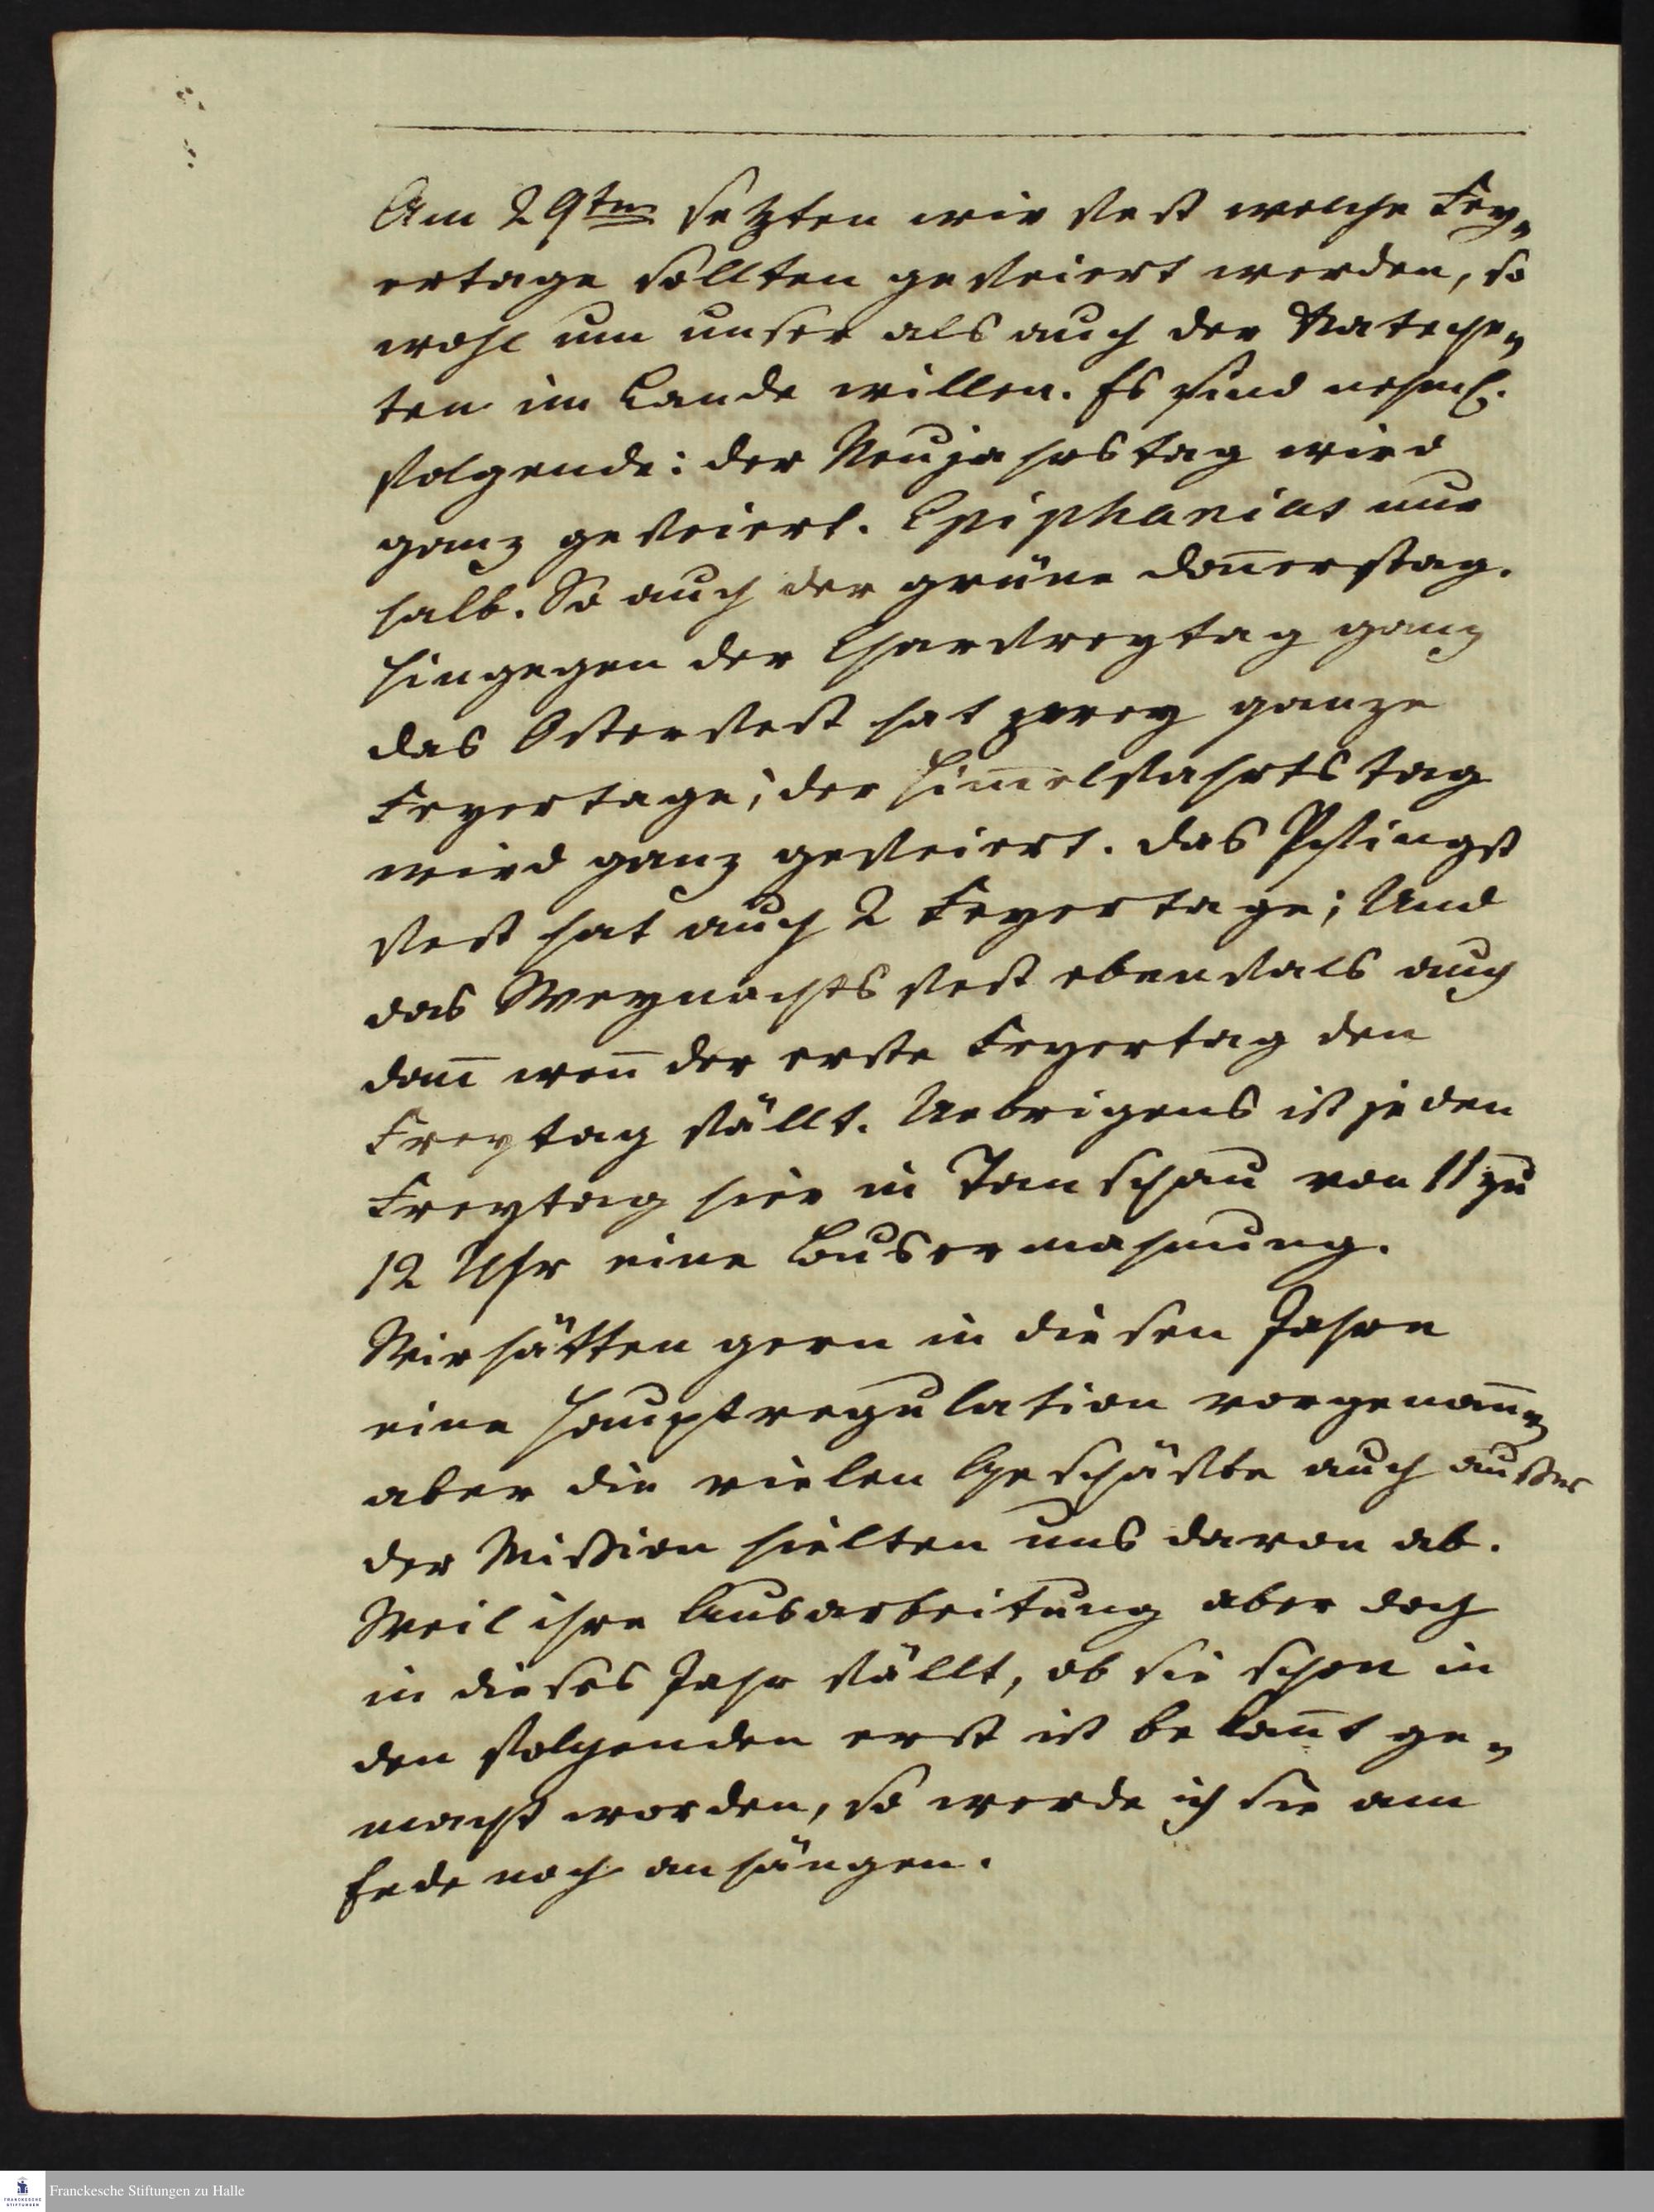 Am 29ten setzten wir fest welche Fey„
ertage sollten gefeiert werden, so
wohl um unser als auch der Kateche„
ten im Lande willen. Es sind nehml.
folgende: der Neujahrstag wird
ganz gefeiert. Epiphanias nur
halb. So auch der grüne Don̄erstag.
Hingegen der Charfreytag ganz
das Osterfest hat zwey ganze
Feyertage; der Him̄elfahrtstag
wird ganz gefeiert. Das Pfingst
fest hat auch 2 Feyertage; Und
das Weynachtsfest ebenfals auch
dan̄ wen̄ der erste Feyertag den
Freytag fällt. Uebrigens ist jeden
Freytag hier in Tanschau von 11 zu
12 Uhr eine Busermahnung.
Wir hätten gern in diesen Jahre
eine Hauptregulation vorgenom̄en
aber die vielen Geschäfte auch ausser
der Mission hielten uns davon ab.
Weil ihre Ausarbeitung aber doch
in dieses Jahr fällt, ob sie schon in
den folgenden erst ist bekan̄t ge„
macht worden, so werde ich sie am
Ende noch anhängen.
Franckesche Stiftungen zu Halle
FRANCKESCHE
STIFTUNGEN